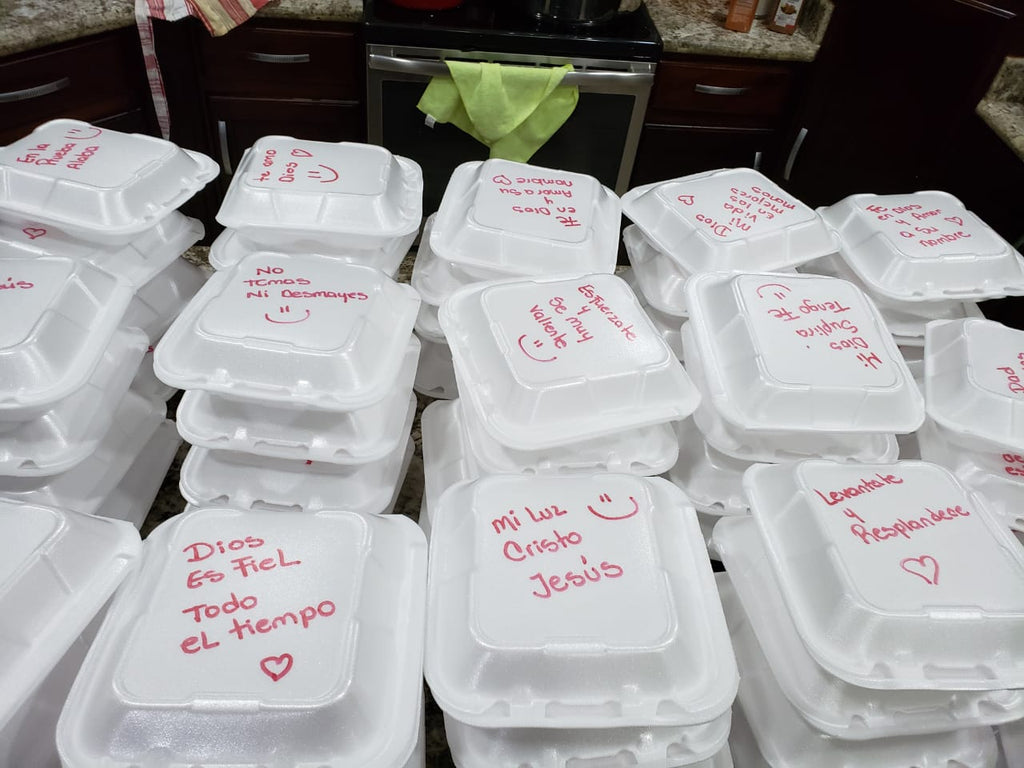 En la
Prueba
Alaba
te amo
Dios
Fe
en Dios
y
Amor a su
nombre
Dios
Mi
Vida
en
mejores
manos
Fe en Dios
y Amor
a su
nombre
No
temas
Ni Desmayes
Esfuerzate
y
Se muy
Valiente
Mi
Dios
Suplira
Tengo Fe
Dios
Es Fiel
Todo
el tiempo
Mi Luz
Cristo
Jesús
Levantate
y
Resplandece